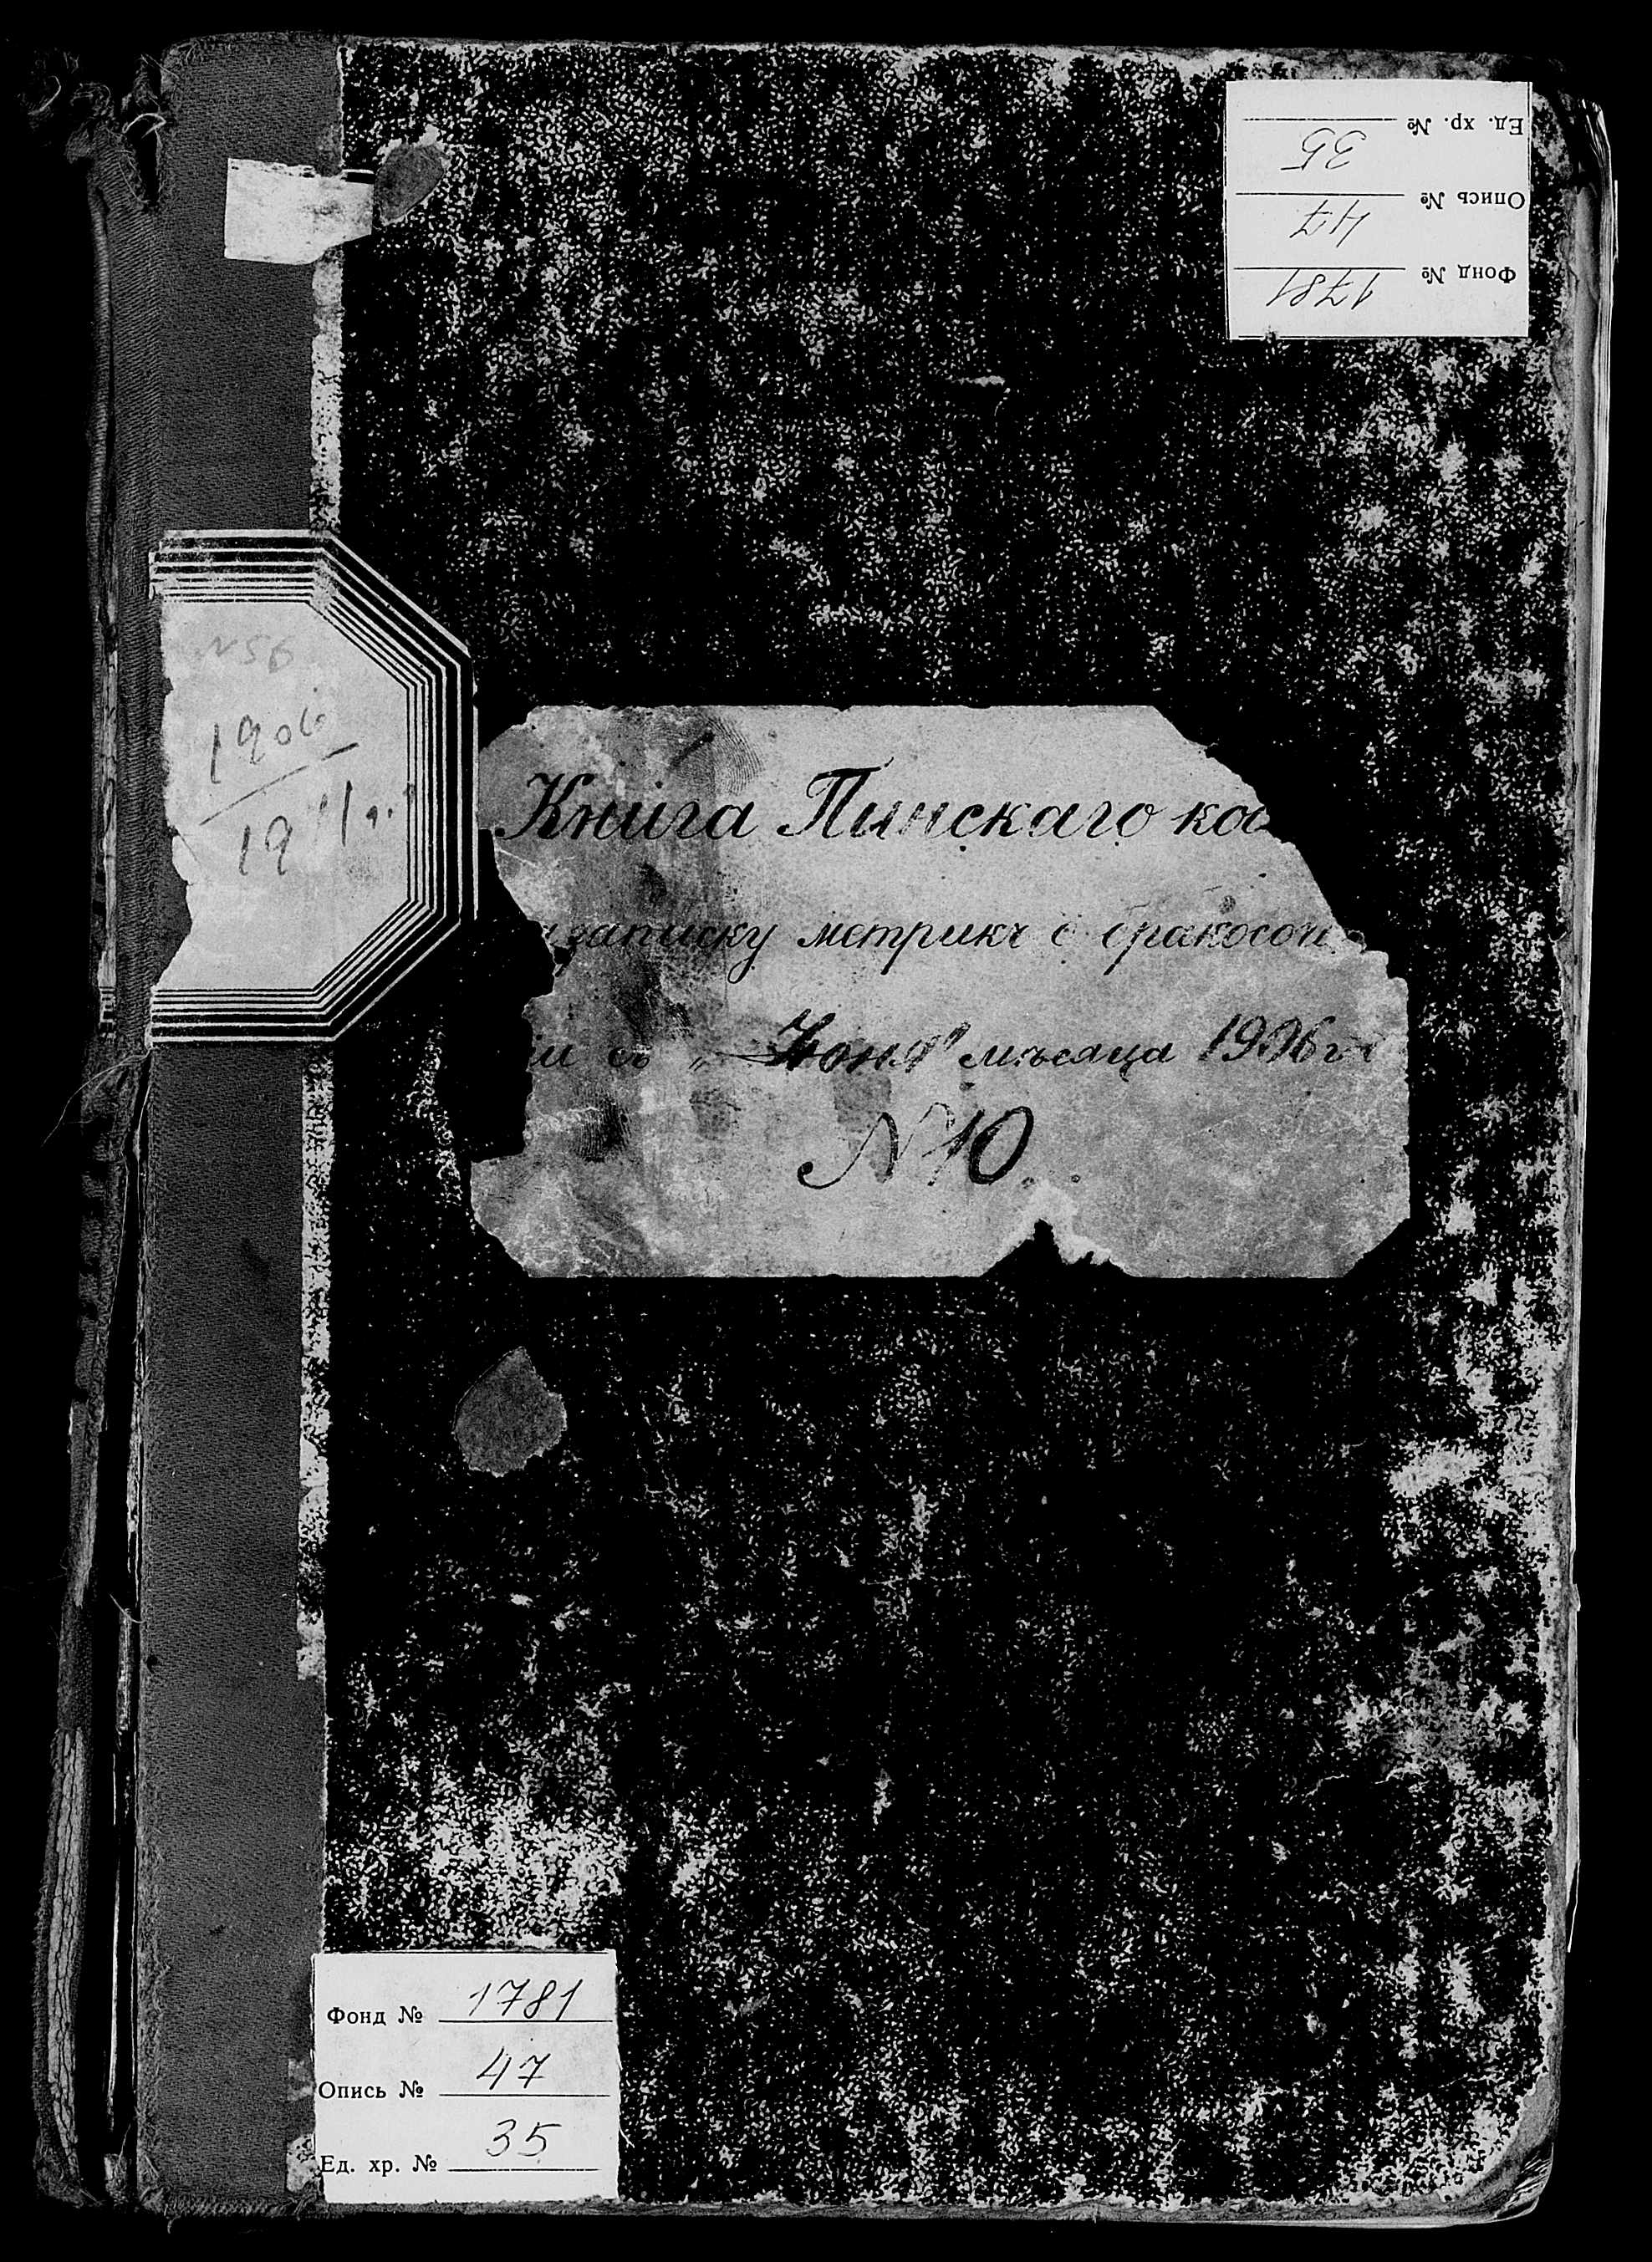 Ед. хр. № 35
Опись № 47
Фонд № 1781
N 56
1906
1911 г.
Книга Пинскаго кос
записку метрикъ о бракосоч
іи съ „Іюня" мѣсяца 1906 г
N 10.
Фонд № 1781
Опись № 47
Ед. хр. № 35